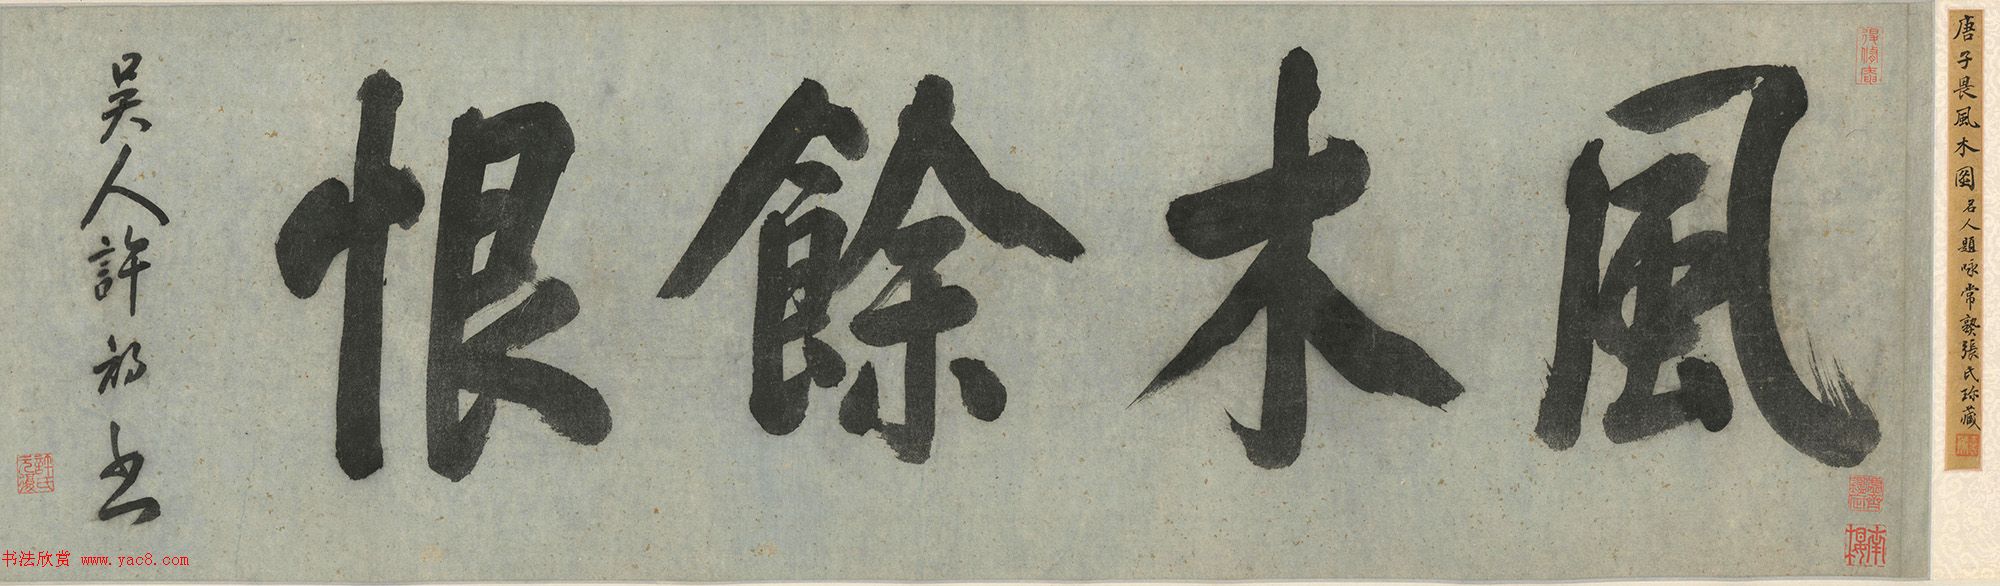 唐子畏風木圖名人題咏常熟張氏珍藏
風木餘恨
吳人許初書
許氏元復
书法欣赏 www.yac8.com